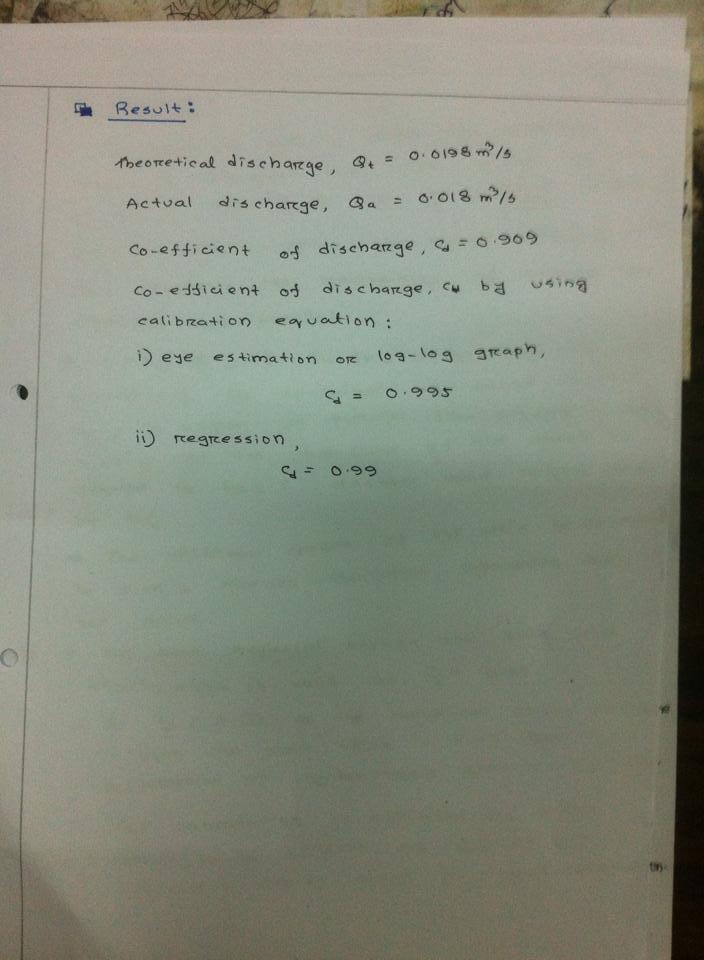 Result:
Theoretical discharge, Qt = 0.0198 m³/s
Actual discharge, Qa = 0.018 m³/s
Co-efficient of discharge, Cd = 0.909
Co-efficient of discharge, Cd by using
calibration equation:
i) eye estimation or log-log graph,
Cd = 0.995
ii) regression,
Cd = 0.99